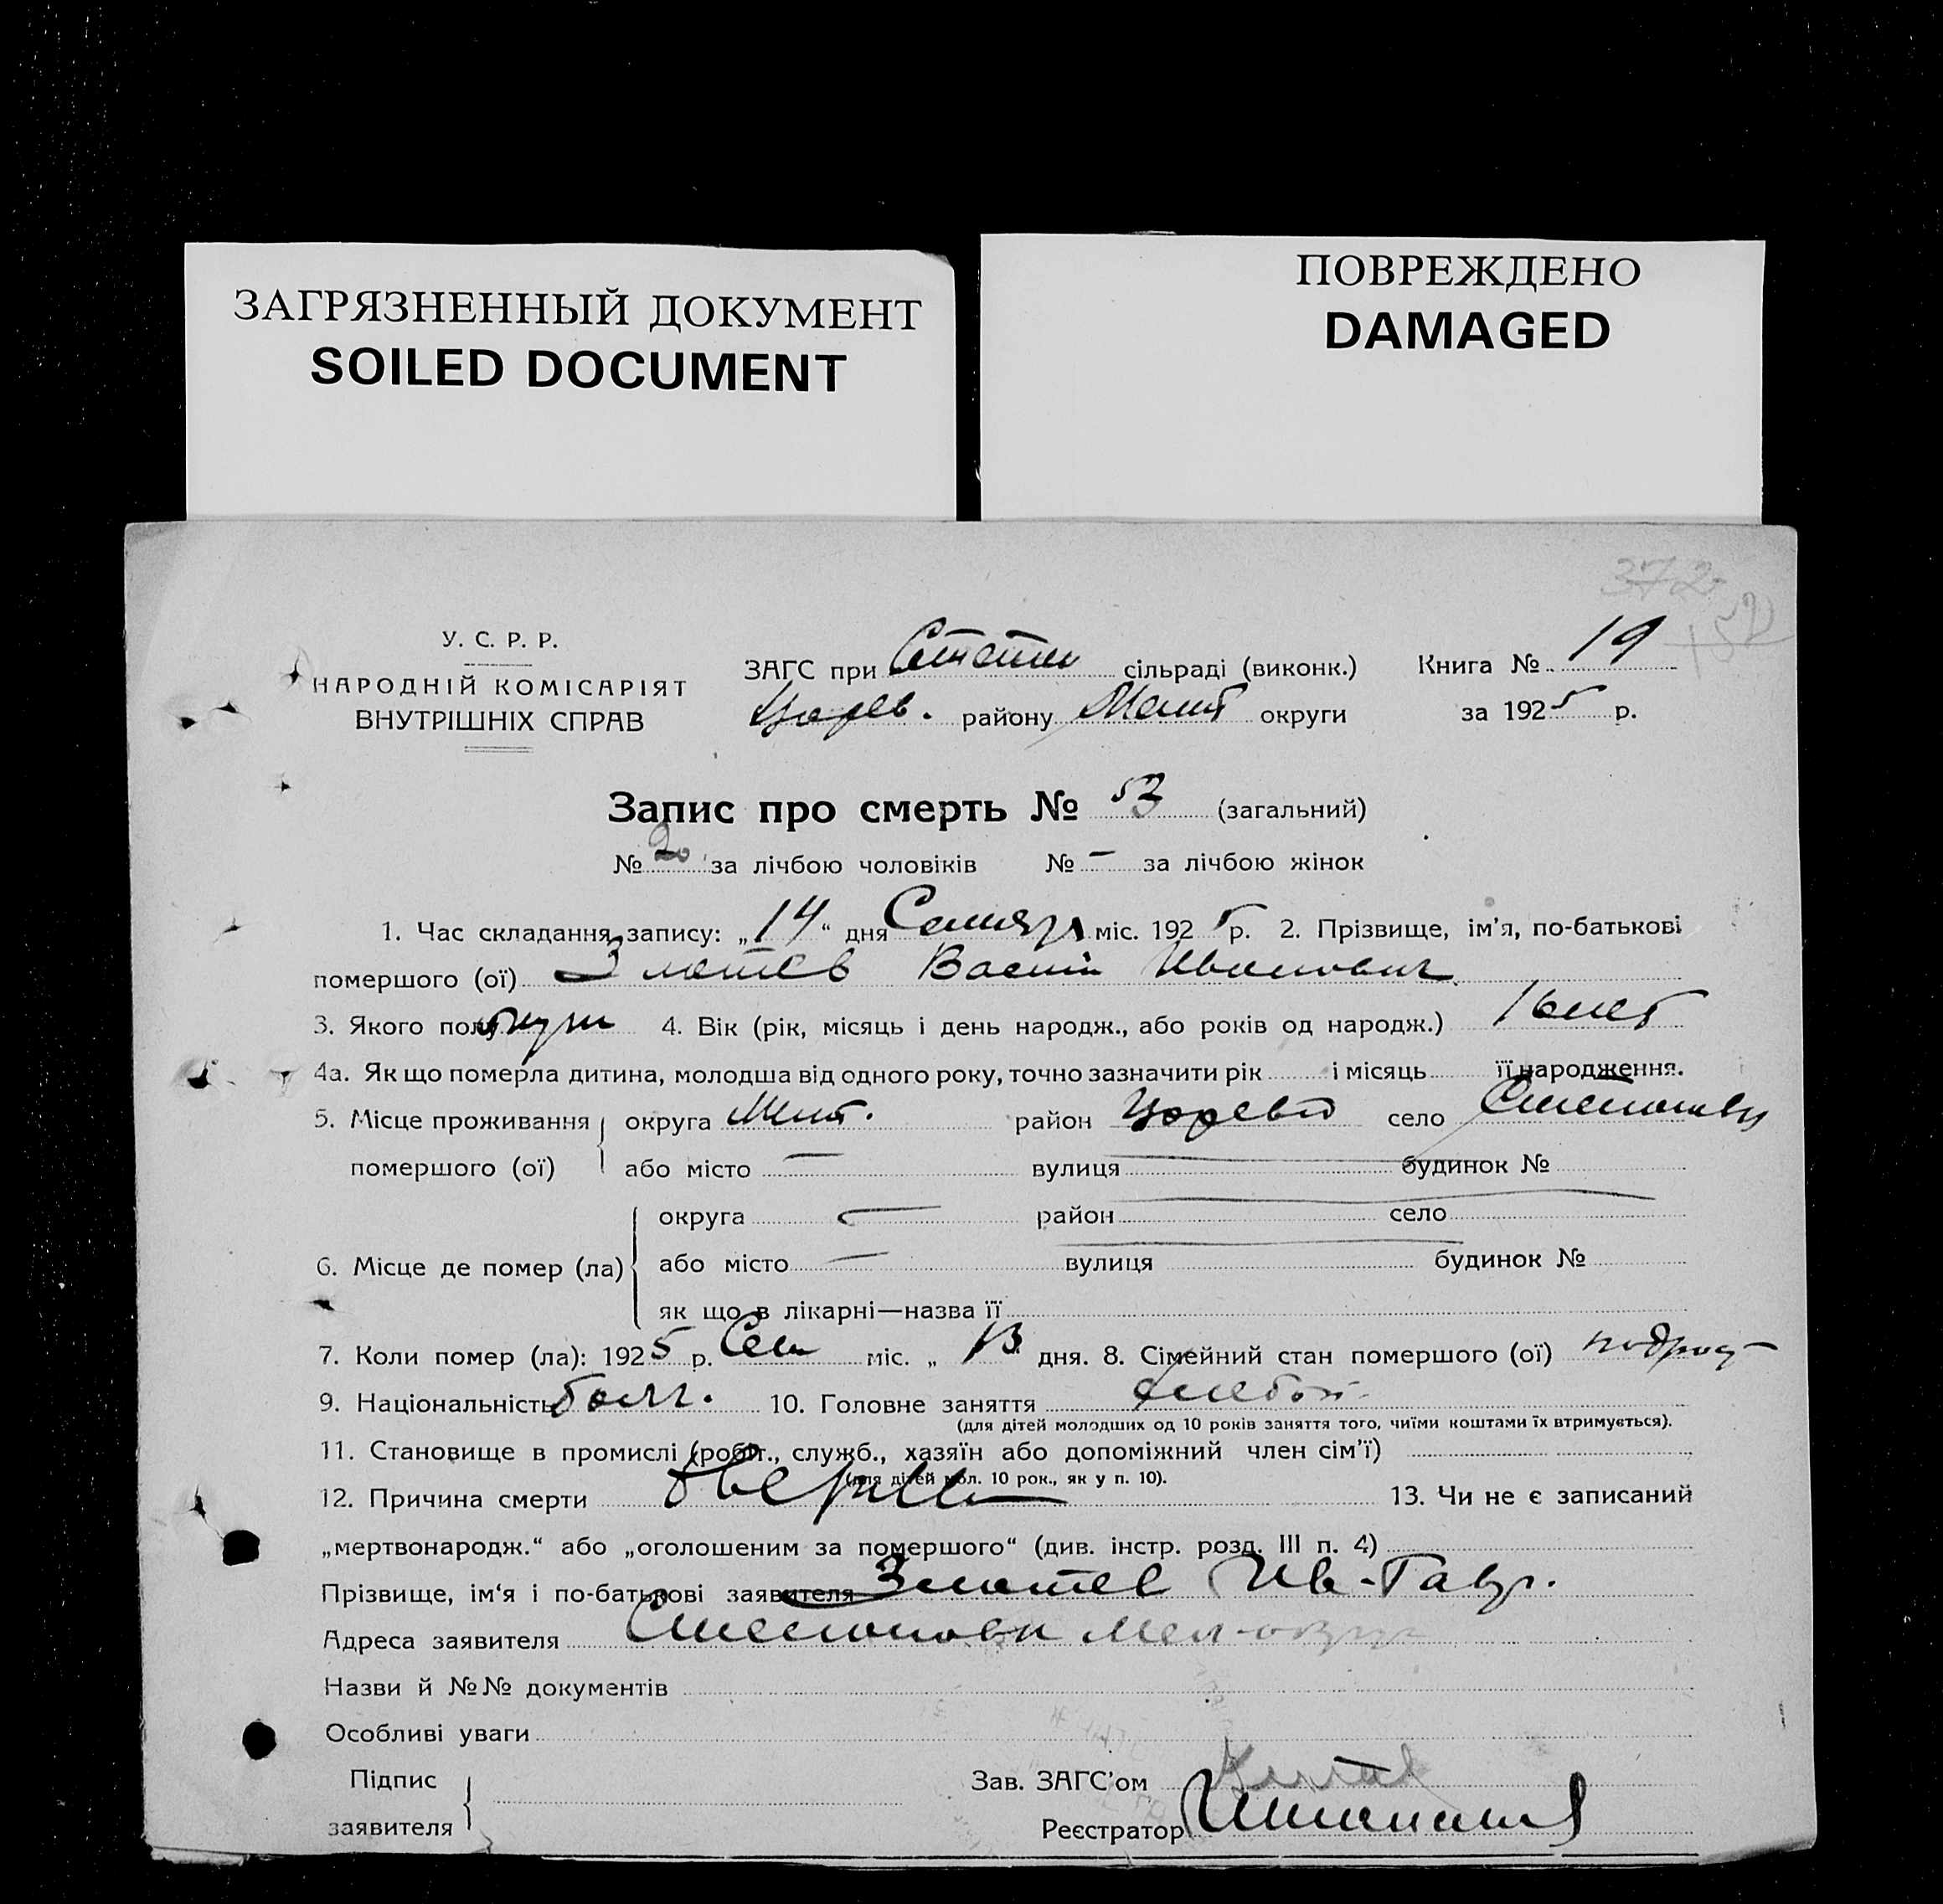 ЗАГРЯЗНЕННЫЙ ДОКУМЕНТ
SOILED DOCUMENT
ПОВРЕЖДЕНО
DAMAGED
372
У. С. Р. Р.
НАРОДНІЙ КОМІСАРІЯТ
ВНУТРІШНІХ СПРАВ
ЗАГС при сільраді (виконк.) Книга № 19
Царев. району Меліт округи за 1925 р.
Запис про смерть № 53 (загальний)
№ 20 за лічбою чоловіків № — за лічбою жінок
1. Час складання запису: „14“ дня міс. 1925 р. 2. Прізвище, ім'я, по-батькові
помершого (ої) Златев Васил Иванович
3. Якого полу муж 4. Вік (рік, місяць і день народж., або років од народж.) 16 лет
4а. Як що померла дитина, молодша від одного року, точно зазначити рік і місяць її народження.
5. Місце проживання помершого (ої) округа Мелит. район Царево село
або місто — вулиця будинок №
6. Місце де помер (ла) округа — район село
або місто — вулиця будинок №
як що в лікарні—назва її
7. Коли помер (ла): 1925 р. Сен міс. „13 дня. 8. Сімейний стан помершого (ої)
9. Національність болг. 10. Головне заняття хлебоп
(для дітей молодших од 10 років заняття того, чиїми коштами їх втримується).
11. Становище в промислі (робіт., служб., хазяїн або допоміжний член сім'ї)
(для дітей мол. 10 рок., як у п. 10).
12. Причина смерти 13. Чи не є записаний
„мертвонародж.“ або „оголошеним за помершого“ (див. інстр. розд. III п. 4)
Прізвище, ім'я і по-батькові заявителя Златев Ив. Гавр.
Адреса заявителя
Назви й №№ документів
Особливі уваги
Підпис заявителя
Зав. ЗАГС'ом
Реєстратор